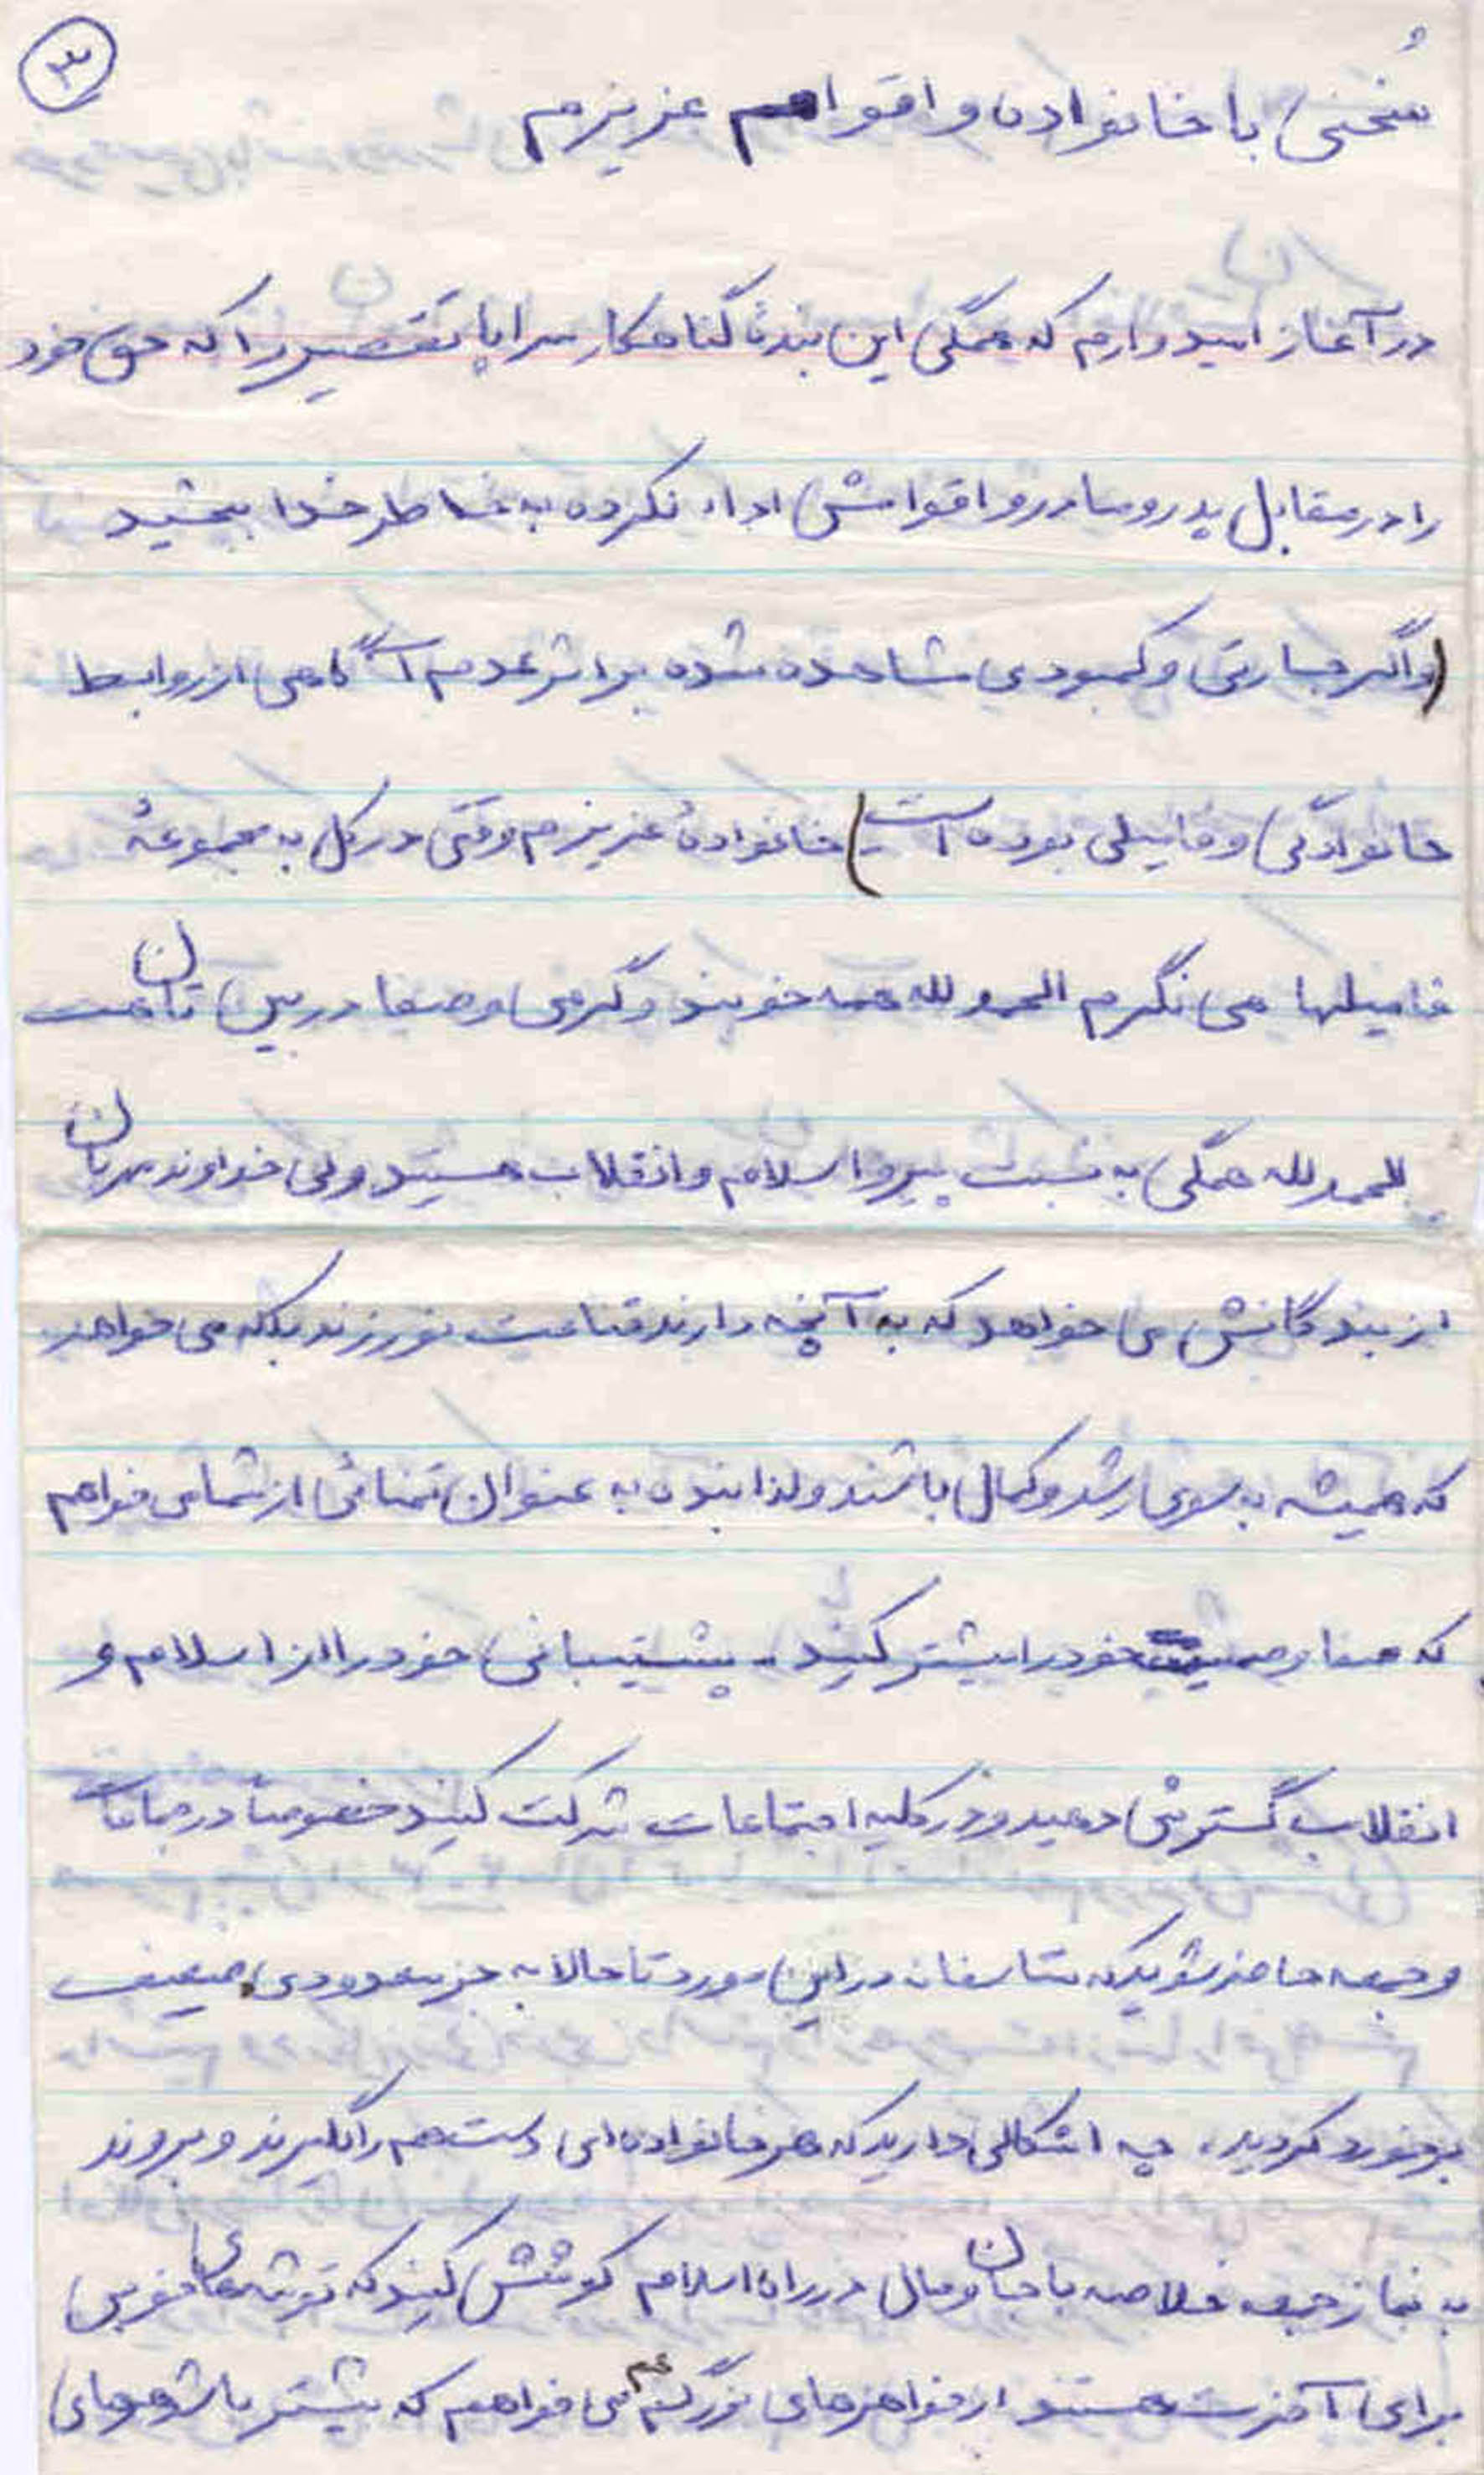 ۳
سُخنی با خانواده و اقوام عزیزم
در آغاز امیدوارم که همگی این بندهٔ گناهکار سراپا تقصیر را که حق خود
را در مقابل پدر و مادر و اقوامش اداء نکرده به خاطر خدا ببخشید
(و اگر جسارتی و کمبودی مشاهده شده بر اثر عدم آگاهی از روابط
خانوادگی و فامیلی بوده است) خانوادهٔ عزیزم وقتی در کل به مجموعهٔ
فامیلها می نگرم الحمدلله همه خوبند و گرمی و صفا در بین تان هست
الحمدلله همگی به نسبت پیرو اسلام و انقلاب هستید ولی خداوند مهربان
از بندگانش می خواهد که به آنچه دارند قناعت نورزند بلکه می خواهد
که همیشه به سوی رشد و کمال باشند و لذا بنده به عنوان تمنائی از شما می خواهم
که صفا و صمیمیت خود را بیشتر کنید. پشتیبانی خود را از اسلام و
انقلاب گسترش دهید و در کلیه اجتماعات شرکت کنید خصوصاً در جماعات
و جمعه حاضر شوید که متاسفانه در این مورد تا حالا به جز معدودی، ضعیف
برخورد کردید. چه اشکالی دارید که هر خانواده ای دست هم را بگیرند و بروند
به نماز جمعه خلاصه با جان و مال در راه اسلام کوشش کنید که توشه های خوبی
برای آخرت هستند از خواهرهای بزرگم هم می خواهم که بیشتر با شوهرهای